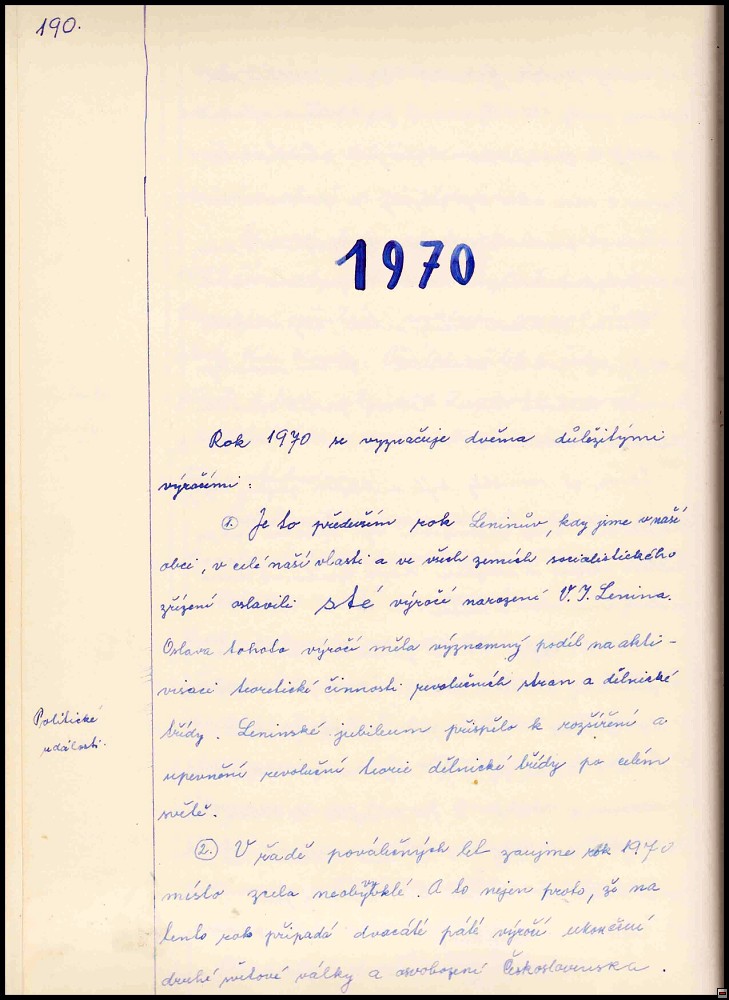 190.
1970
Rok 1970 se vyznačuje dvěma důležitými
výročími:
1. Je to především rok Leninův, kdy jsme v naší
obci, v celé naší vlasti a ve všech zemích socialistického
zřízení oslavili sté výročí narození V. I. Lenina.
Oslava tohoto výročí měla významný podíl na akti-
visaci teoretické činnosti revolučních stran a dělnické
třídy. Leninské jubileum přispělo k rozšíření a
upevnění revoluční teorie dělnické třídy po celém
světě.
Politické
události.
2. V řadě poválečných let zaujme rok 1970
místo zcela neobvyklé. A to nejen proto, že na
tento rok připadá dvacáté páté výročí ukončení
druhé světové války a osvobození Československa.